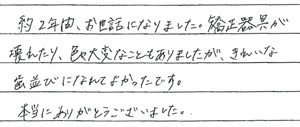 約2年間、お世話になりました。矯正器具が
壊れたり、色々大変なこともありましたが、きれいな
歯並びになれてよかったです。
本当にありがとうございました。